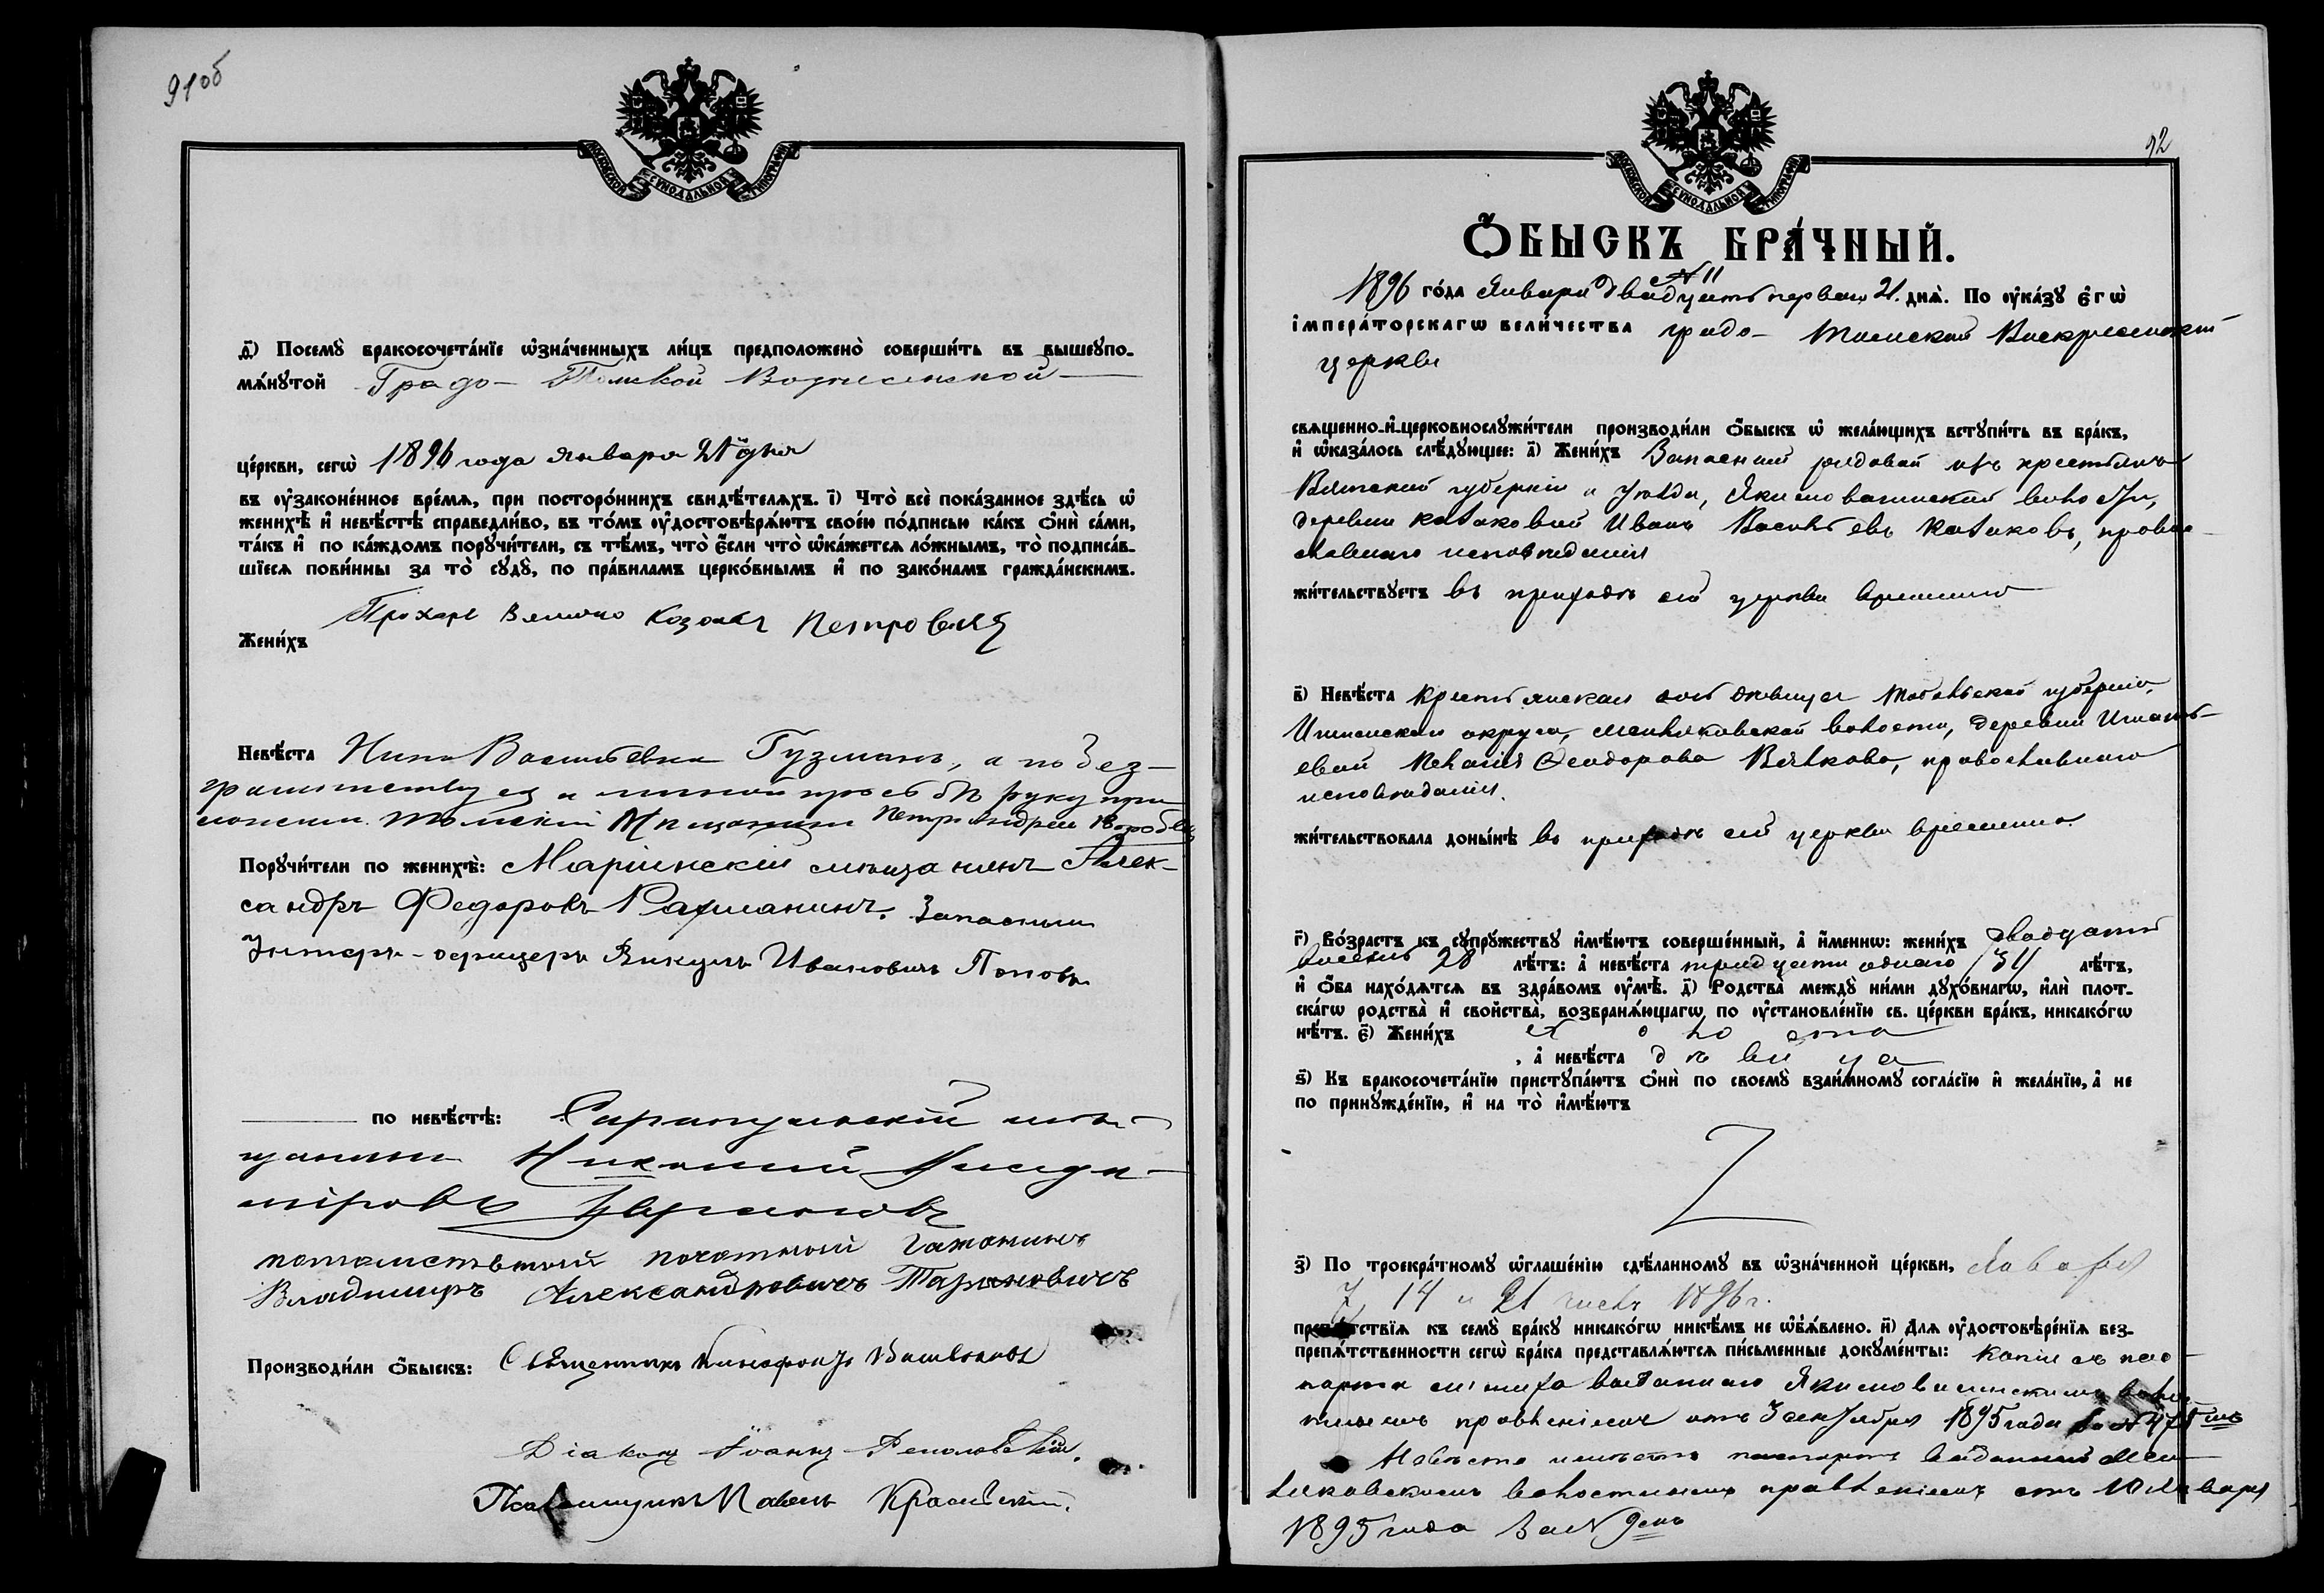 91об
МОСКОВСКОЙ СѴНОДАЛЬНОЙ ТИПОГРАФІИ
д҃) Посемꙋ̀ бракосочета́нїе ѡ҆зна́ченныхъ ли́цъ предположено̀ соверши́ть въ вышеꙋпо-
мѧ́нꙋтой Градо- Томской Вознесенской
це́ркви, сегѡ̀ 1896 года Января 21 дня
въ ᲂу҆законе́нное вре́мѧ, при посторо́ннихъ свидѣ́телѧхъ. і҃) Что̀ всѐ пока́занное здѣ́сь ѡ҆
женихѣ̀ и҆ невѣ́стѣ справедли́во, въ то́мъ ᲂу҆достовѣрѧ́ютъ свое́ю по́дписью ка́къ ѻ҆нѝ са́ми,
та́къ и҆ по ка́ждомъ порꙋчи́тели, съ тѣ́мъ, что̀ є҆́сли что̀ ѡ҆ка́жетсѧ ло́жнымъ, то̀ подписа́в-
шїесѧ пови́нны за то̀ сꙋдꙋ̀, по пра́виламъ церко́внымъ и҆ по зако́намъ гражда́нскимъ.
Жени́хъ Прохаръ Козакъ Петровъ
Невѣ́ста Нина Васильевна Гузманъ, а по без-
грамотству ея и личной прозьбѣ руку при
ложилъ Томскій Мещанинъ Петръ Андреевъ
Порꙋчи́тели по женихѣ̀: Маріинскій мѣщанинъ Алек-
сандръ Федоровъ Рахманинъ. Запасный
Унтеръ-офицеръ Викулъ Ивановичъ Поповъ
по невѣ́стѣ: Сарапульскій мѣ-
щанинъ Николай Влади-
міровъ
потомственый почотный гражонинъ
Владимиръ Александровичъ Тарановичъ
Производи́ли ѻ҆́быскъ: Священникъ Ксенофонтъ Васильковъ
Діаконъ Іоаннъ
Псаломщикъ Павелъ
92
МОСКОВСКОЙ СѴНОДАЛЬНОЙ ТИПОГРАФІИ
Ѻ҆́БЫСКЪ БРА́ЧНЫЙ.
№ 11
1896 го́да Января двадцать перваго 21. днѧ̀. По ᲂу҆ка́зꙋ є҆гѡ̀
і҆мпера́торскагѡ вели́чества градо- Томской Воскресенской
церкви
свѧщенно-и҆-церковнослꙋжи́тели производи́ли ѻ҆́быскъ ѡ҆ жела́ющихъ встꙋпи́ть въ бра́къ,
и҆ ѡ҆каза́лось слѣ́дꙋющее: а҃) Жени́хъ Запасный рядовой изъ крестьянъ
Вятской губерніи и уѣзда, Якимовагинской волости,
деревни Казаковой Иванъ Васильевъ Казаковъ, право-
славнаго исповѣданія
жи́тельствꙋетъ въ приходѣ сей церкви временно
в҃) Невѣ́ста Крестьянская дочь дѣвица Тобольской губерніи,
Ишимскаго округа, волости, деревни Игнать-
евой Пелагія Ѳеодорова Вялкова, православнаго
исповѣданія.
жи́тельствовала доны́нѣ въ приходѣ сей церкви временно.
г҃) Во́зрастъ къ сꙋпрꙋ́жествꙋ и҆мѣ́ютъ соверше́нный, а҆ и҆́менно: жени́хъ двадцати
восемь 28 лѣ́тъ: а҆ невѣ́ста тридцати одного 31 лѣ́тъ,
и҆ ѻ҆́ба нахо́дѧтсѧ въ здра́вомъ ᲂу҆мѣ̀. д҃) Родства̀ междꙋ̀ ни́ми дꙋхо́внагѡ, и҆лѝ плот-
ска́гѡ родства̀ и҆ сво́йства, возбранѧ́ющагѡ по ᲂу҆становле́нїю св. це́ркви бра́къ, никако́гѡ
нѣ́тъ. є҃) Жени́хъ холостъ
, а҆ невѣ́ста дѣвица
ѕ҃) Къ бракосочета́нїю пристꙋпа́ютъ ѻ҆нѝ по своемꙋ̀ взаи́мномꙋ согла́сїю и҆ жела́нїю, а҆ не
по принꙋжде́нїю, и҆ на то̀ и҆мѣ́ютъ
з҃) По троекра́тномꙋ ѡ҆глаше́нїю сдѣ́ланномꙋ въ ѡ҆зна́ченной це́ркви, Января
7, 14 и 21 числъ 1896 г.
препѧ́тствїѧ къ семꙋ̀ бра́кꙋ никако́гѡ никѣ́мъ не ѡ҆б̾ѧ́влено. и҃) Длѧ ᲂу҆достовѣре́нїѧ без-
препѧ́тственности сегѡ̀ бра́ка представлѧ́ютсѧ пи́сьменные докꙋме́нты: копія съ пас-
порта жениха выданнаго Якимовагинскимъ волост-
нымъ правленіемъ отъ 3 сентября 1895 года за №
Невѣста имѣетъ паспортъ выданный
волостнымъ правленіемъ отъ 10 Января
1895 года за № 9емъ